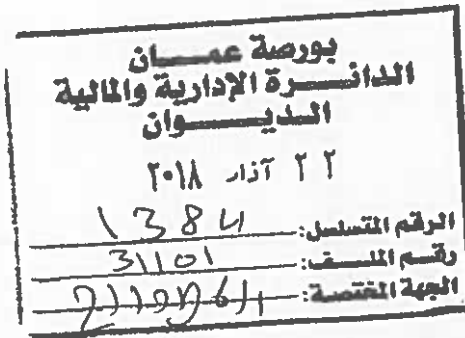 بورصة عمـــان
الدائــــرة الإدارية والمالية
الديـــــوان
٢٢ آذار ٢٠١٨
الرقم المتسلسل: 1384
رقم الملـــف: 31101
الجهة المختصة: